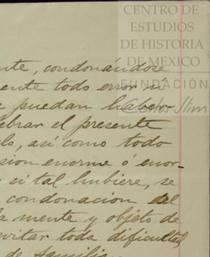 CENTRO DE
ESTUDIOS
DE HISTORIA
DE MEXICO
FUNDACIÓN
Carlos Slim
nte, condonándose
mente todo error si
puedan haber
ebrar el presente
lo, así como todo
sion enorme ó enor-
si tal hubiere, se
condonacion del
a mente y objeto de
evitar toda dificultad
de familia